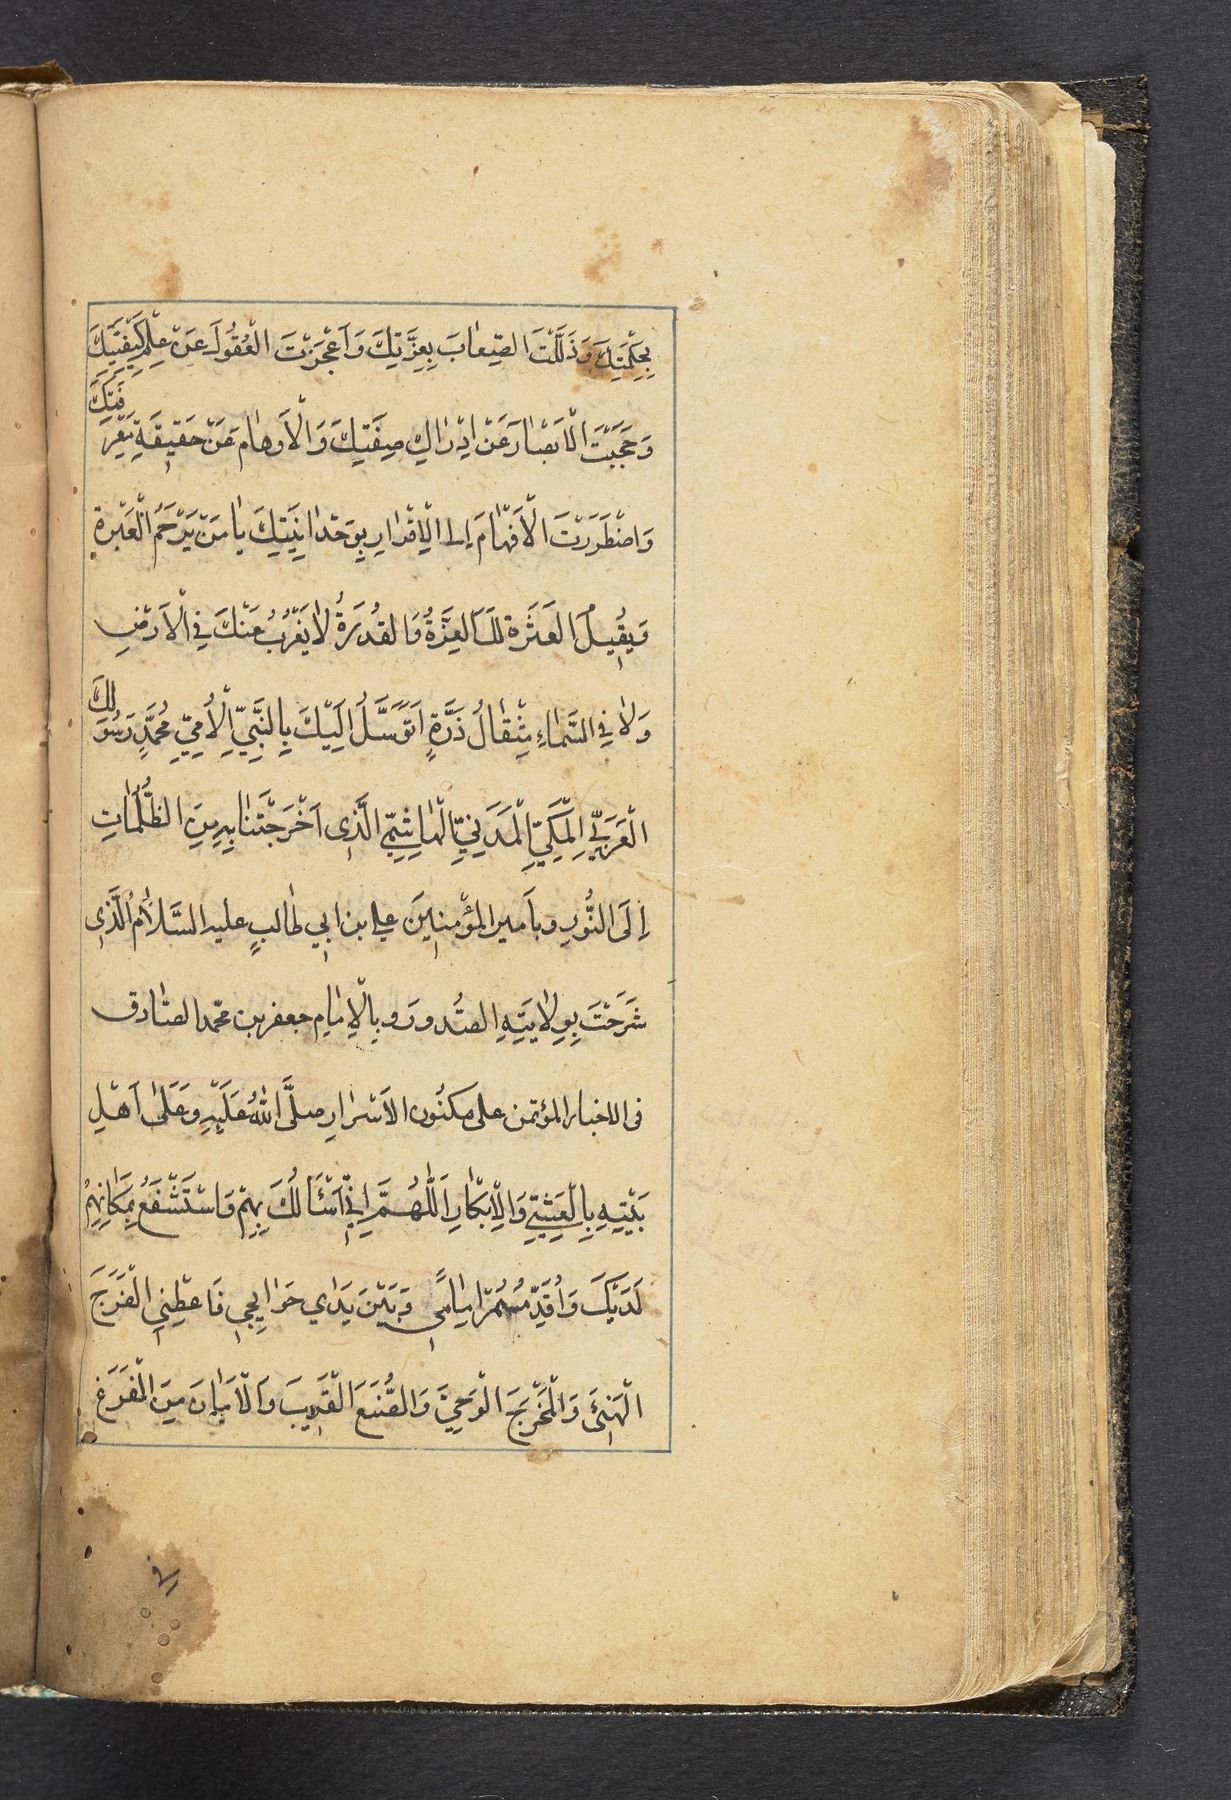 بِحِكْمَتِكَ وَذَلَّلْتَ الصِّعٰابَ بِعِزَّتِكَ وَاَعْجَزْتَ الْعُقُولَ عَنْ عِلْمِ كَيْفِيَّتِكَ
وَحَجَبْتَ الْاَبْصٰارَ عَنْ اِدْرٰاكِ صِفَتِكَ وَالْاَوهٰامَ عَنْ حَقيٖقَةِ مَعْرِفَتِكَ
وَاضْطَرَرْتَ الْاَفْهٰامَ اِلى الْاِقْرٰارِ بِوَحْدٰانِيَّتِكَ يٰا مَنْ يَرْحَمُ الْعَبْرَةِ
وَيُقيٖلُ الْعَثَرَةَ لَكَ الْعِزَّةُ وَالْقُدْرَةُ لاٰ يَعْزُبُ عَنْكَ فِي الْاَرْضِ
وَلاٰ فِي السَّمٰاءِ مِثْقٰالُ ذَرَّةٍ اَتَوَسَّلُ اِلَيْكَ بِالنَّبِيِّ الْاُمِّيِّ مُحَمَّدٍ رَسُولِكَ
الْعَرَبِيِّ الْمَكِّيِّ الْمَدَنِيِّ الْهٰاشِمِيِّ الَّذِى اَخْرَجْتَنٰا بِهِ مِنَ الظُّلُمٰاتِ
اِلَى النُّورِ وبأمير المؤْمنيٖنَ علي بن ابي طٰالبٍ عليه السَّلاٰمُ الَّذِى
شَرَحْتَ بِوِلاٰيَتِهِ الصُّدورَ وبِالْاِمٰامِ جعفر بن محمّد الصّٰادق
فى الاخبار المؤتمن على مكنُون الاَسْرٰارِ صلَّى اللهُ عَلَيْهِ وَعَلىٰ اَهْلِ
بَيْتِهِ بِالْعَشِيِّ وَالْاِبْكٰارِ اَللّٰهُمَّ اِنّيٖ اَسْئَالُكَ بِهِمْ وَاسْتَشْفَعُ بِمَكٰانِهِمْ
لَدَيْكَ وَاُقَدِّمُهُمْ اَمٰاميٖ وَبَيْنَ يَدٰاي حَوٰائِجيٖ فَاعْطِنيٖ الْفَرَجَ
الْهَنيٖئَ وَالْمَخْرَجَ الْوَحِيَّ وَالصُّنْعَ الْقَريٖبَ وَالْاَمٰانَ مِنَ الْفَزَعِ